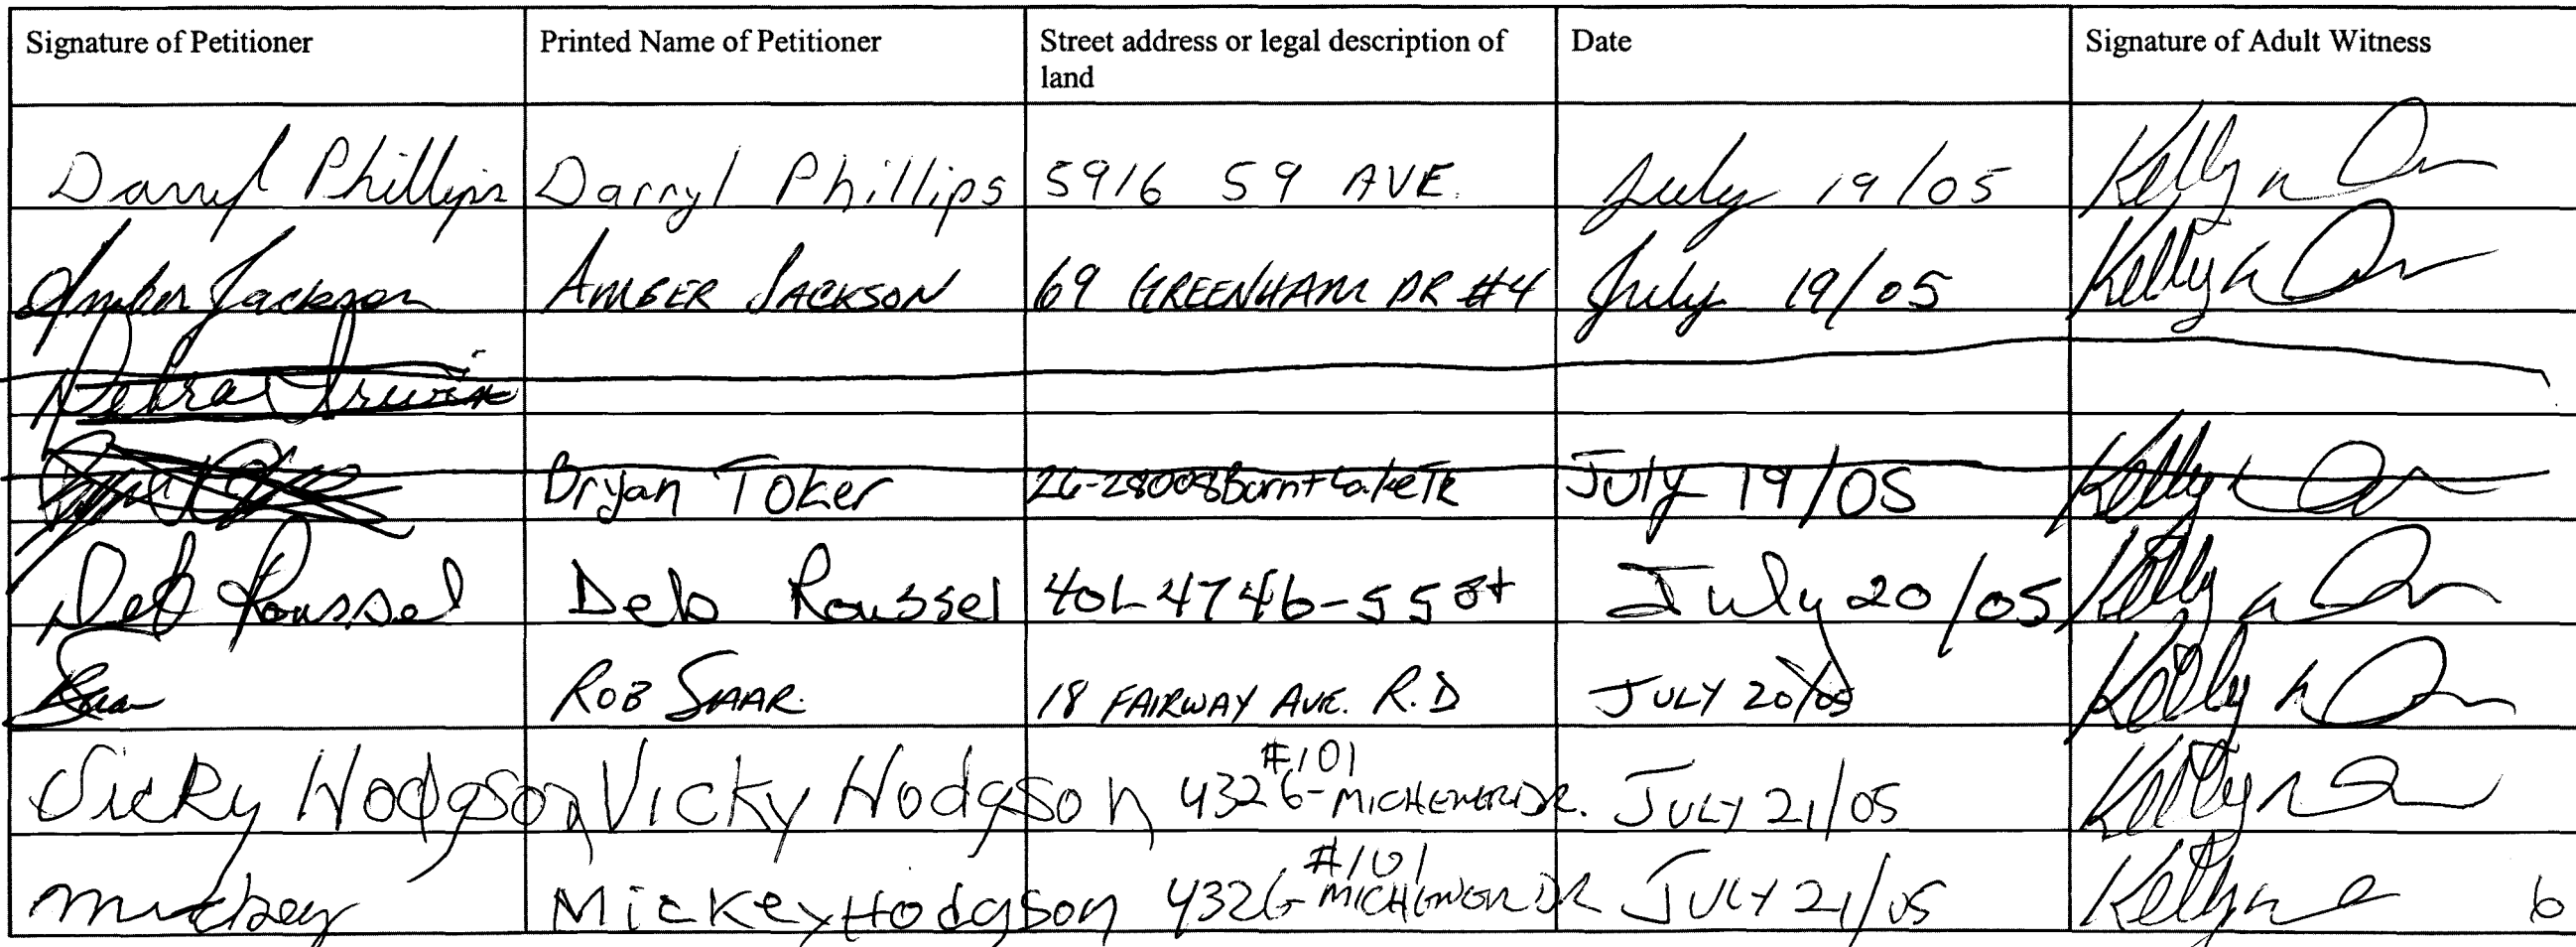 Signature of Petitioner Printed Name of Petitioner Street address or legal description of land Date Signature of Adult Witness
Darryl Phillips Darryl Phillips 5916 59 AVE. July 19/05 Kelly
Amber Jackson AMBER JACKSON 69 GREENHAM DR #4 July 19/05 Kelly
Debra Irwin
Bryan Toker 26-28008 Burnt Lake Tr July 19/05 Kelly
Deb Roussel Deb Roussel 401-4746-55 st July 20/05 Kelly
ROB SAAR. 18 FAIRWAY AVE. R.D JULY 20/05 Kelly
Vicky Hodgson Vicky Hodgson #101 4326-MICHENER DR. JULY 21/05 Kelly
Mickey Mickey Hodgson #101 4326-MICHENER DR JULY 21/05 Kelly
6